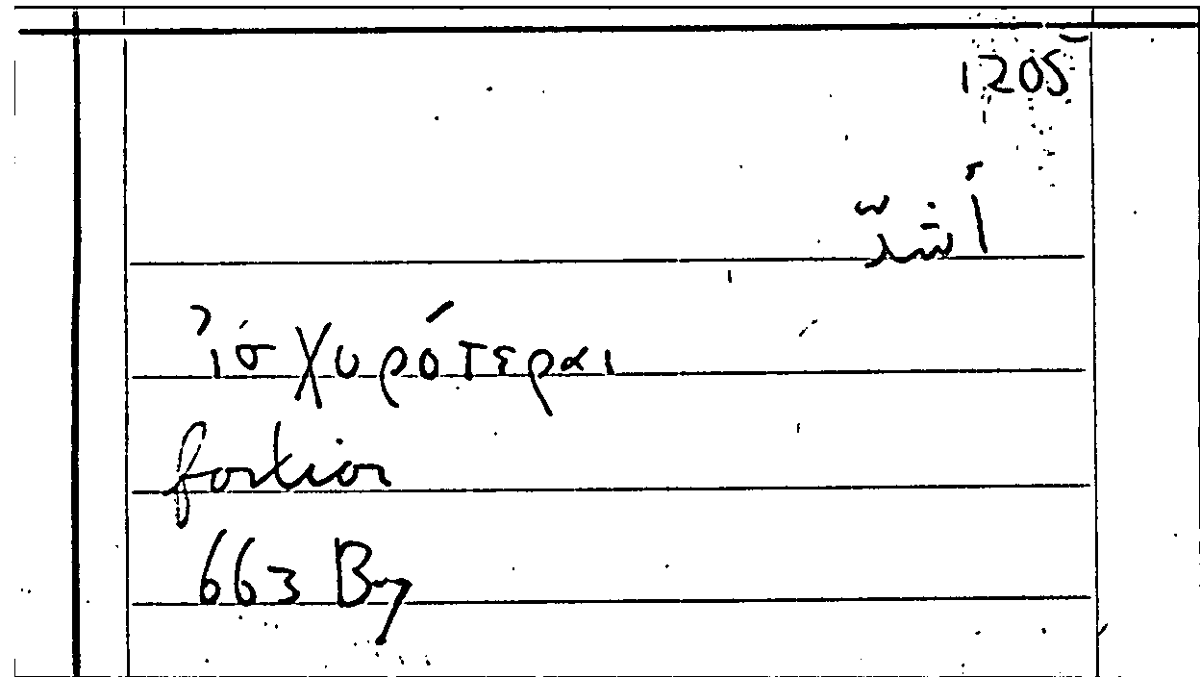 1205
أشدّ
ἰσχυρότεραι
fortior
663 By